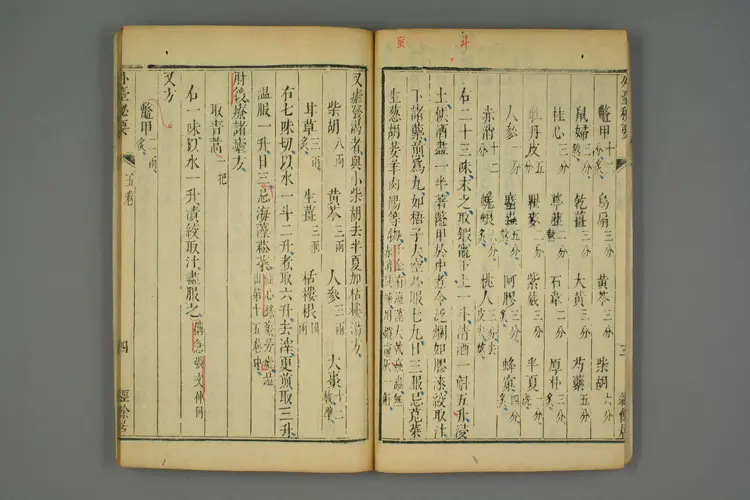 蜜 斗
外臺秘要
鼈甲十二分炙 烏扇三分 黃芩三分 柴胡六分
鼠婦三分熬 乾薑三分 大黃三分 芍藥五分
桂心三分 葶藶二分熬 石韋二分 厚朴三分
牡丹皮五分 瞿麥二分 紫葳三分 半夏一分洗
人參一分 䗪蟲五分熬 阿膠三分炙 蜂窠四分炙
赤消十二分 蜣螂六分炙 桃人三分去皮尖熬
右二十三味末之取鍛竈下土一斗清酒一斛五升浸
土候酒盡一半著鼈甲於中煮令泛爛如膠漆絞取汁
下諸藥煎爲丸如梧子大空心服七丸日三服忌莧菜
生葱胡荽羊肉餳等物
三
經餘居
又瘧發渴者與小柴胡去半夏加栝樓湯方
柴胡八兩 黃芩三兩 人參三兩 大棗十二枚擘
甘草三兩炙 生薑三兩 栝樓根四兩
右七味切以水一斗二升煮取六升去滓更煎取三升
溫服一升日三忌海藻菘菜
肘後療諸瘧方
取青蒿一把
右一味以水一升漬絞取汁盡服之備急張文仲同
又方
鼈甲二兩炙
外臺秘要 五卷
四
經餘居